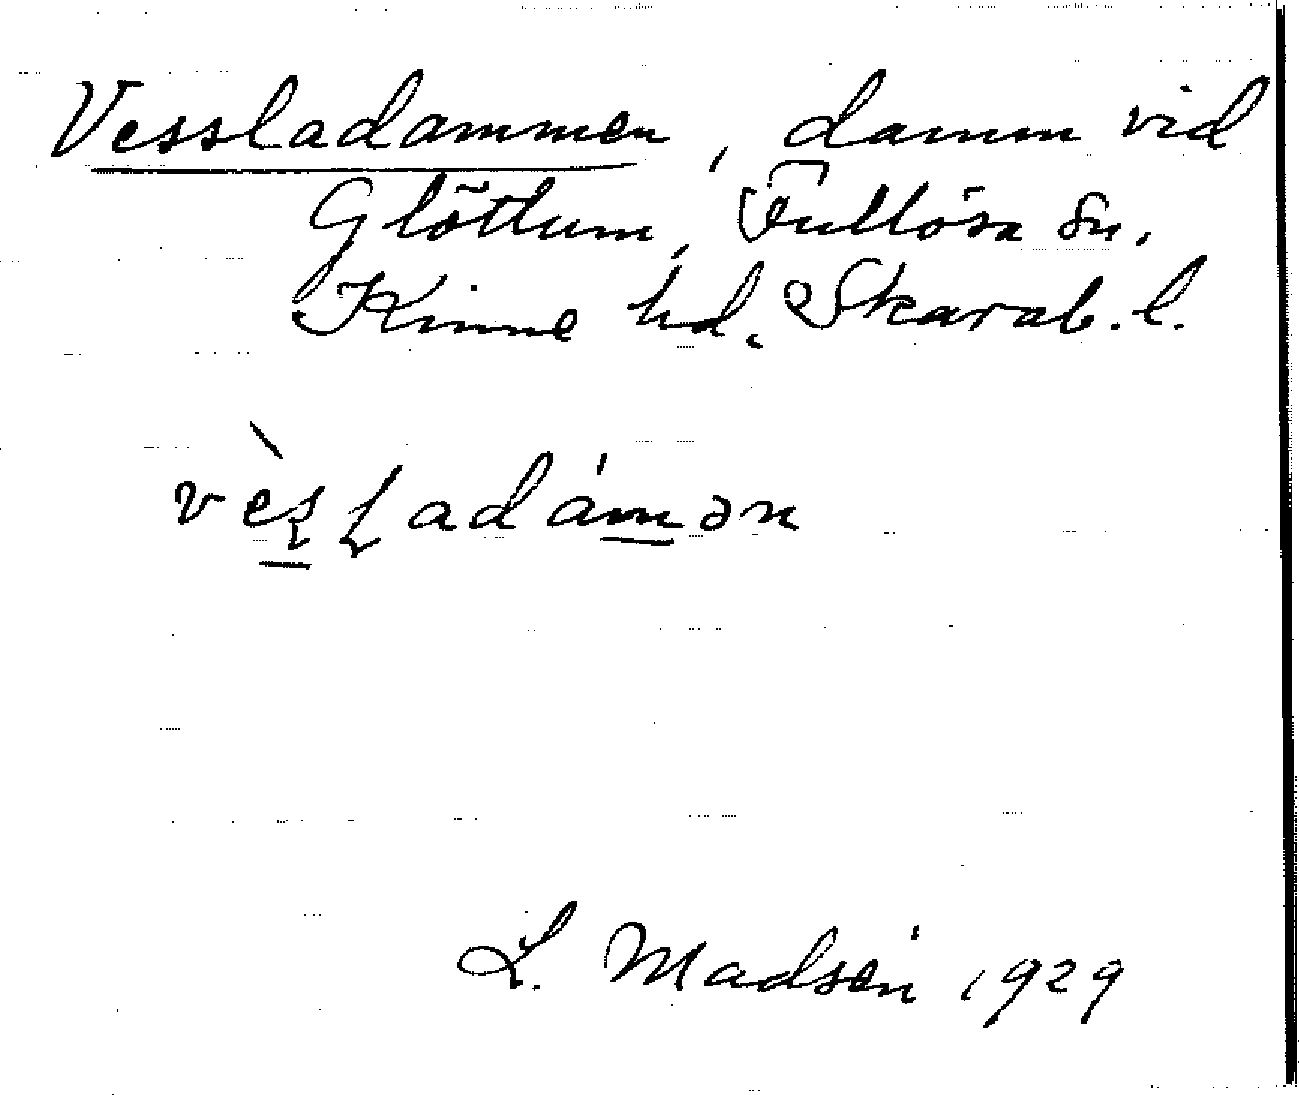 Vessladammen, damm vid
Glöttum, Fullösa sn.
Kinne hd. Skarab. l.
vèsladámən
L. Madsén 1929